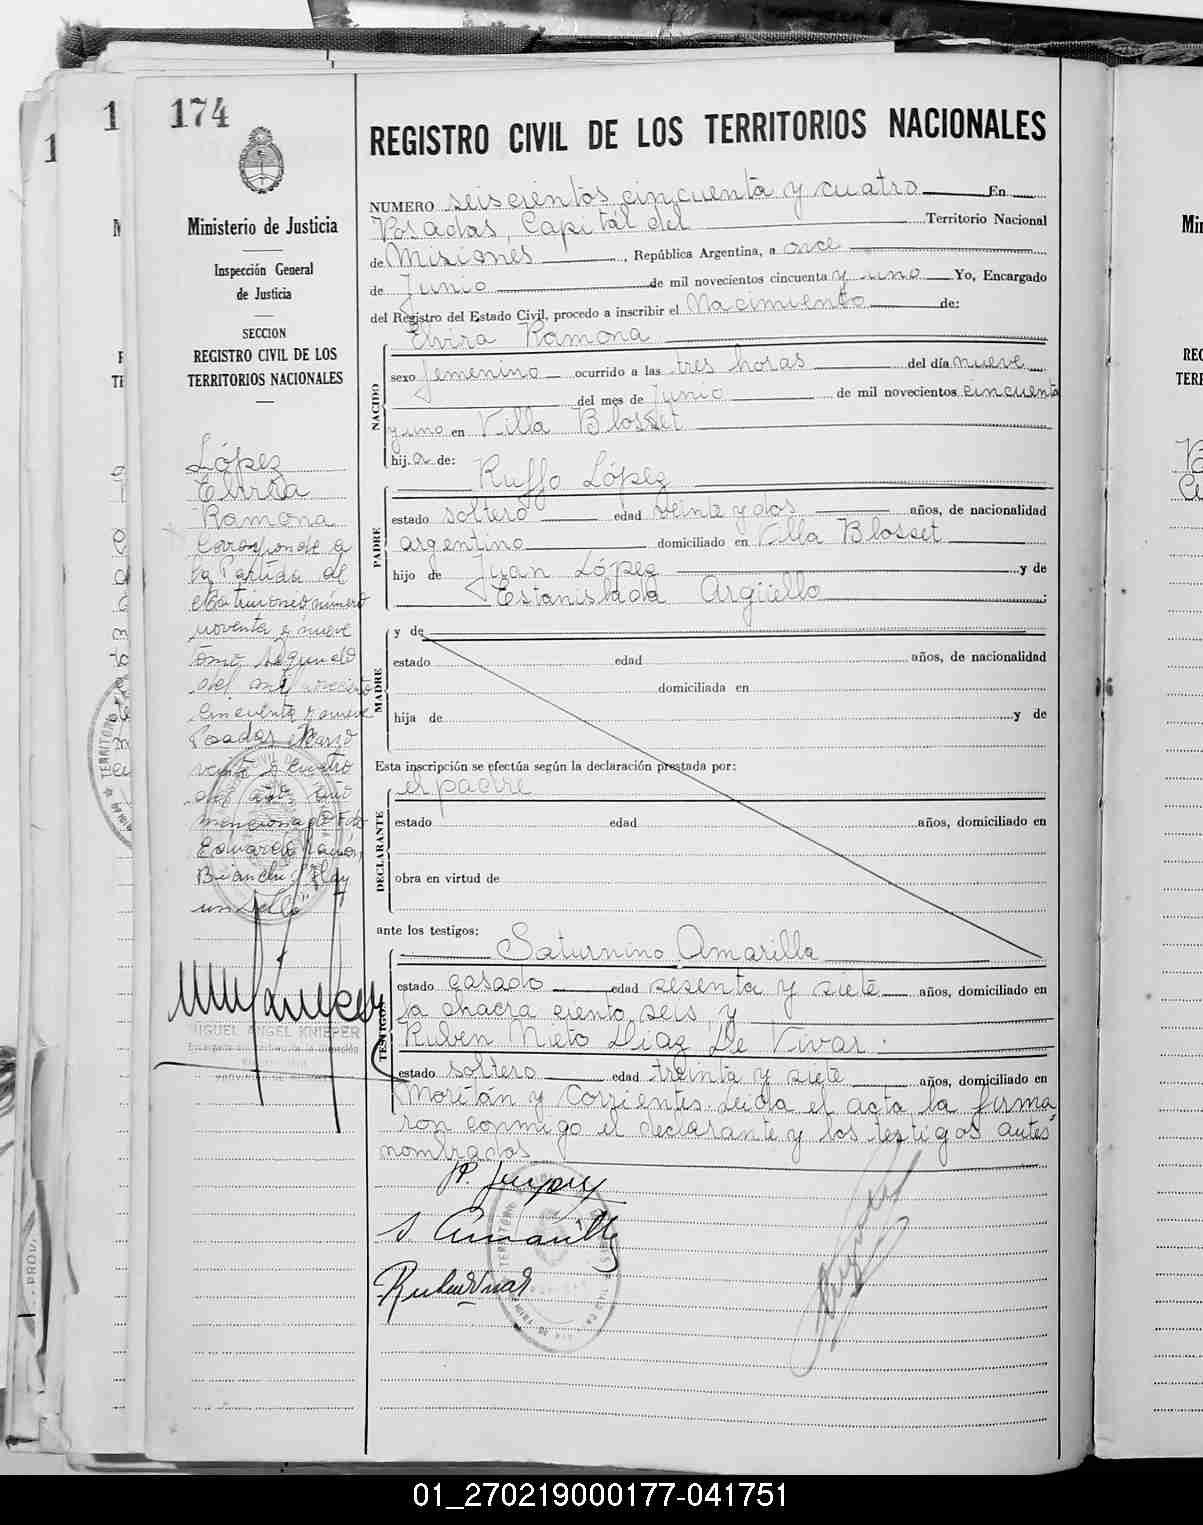 174
Ministerio de Justicia
Inspección General
de Justicia
SECCION
REGISTRO CIVIL DE LOS
TERRITORIOS NACIONALES
López
Elvira
Ramona
Corresponde a
la Partida de
Matrimonio número
noventa y nueve
tomo segundo
del mil novecientos
cincuenta y nueve
Posadas Marzo
veinte y cuatro
del año
mencionado
Eduardo Ramón
Bianchi "Hay
un sello"
MIGUEL ANGEL KNIEPER
REGISTRO CIVIL DE LOS TERRITORIOS NACIONALES
NUMERO seiscientos cincuenta y cuatro En
Posadas, Capital del Territorio Nacional
de Misiones, República Argentina, a once
de Junio de mil novecientos cincuenta y uno Yo, Encargado
del Registro del Estado Civil, procedo a inscribir el Nacimiento de:
Elvira Ramona
NACIDO
sexo femenino ocurrido a las tres horas del día nueve
del mes de Junio de mil novecientos cincuenta
y uno en Villa Blosset
hija de:
Ruffo López
PADRE
estado soltero edad veinte y dos años, de nacionalidad
argentino domiciliado en Villa Blosset
hijo de Juan López y de
Estanislada Argüello
MADRE
y de
estado edad años, de nacionalidad
domiciliada en
hija de y de
Esta inscripción se efectúa según la declaración prestada por:
el padre
DECLARANTE
estado edad años, domiciliado en
obra en virtud de
ante los testigos:
Saturnino Amarilla
TESTIGOS
estado casado edad sesenta y siete años, domiciliado en
la chacra ciento seis, y
Ruben Nieto Diaz De Vivar.
estado soltero edad treinta y siete años, domiciliado en
Moritán y Corrientes. Leida el acta la firma
ron conmigo el declarante y los testigos antes
nombrados
S. Amarilla
01_270219000177-041751